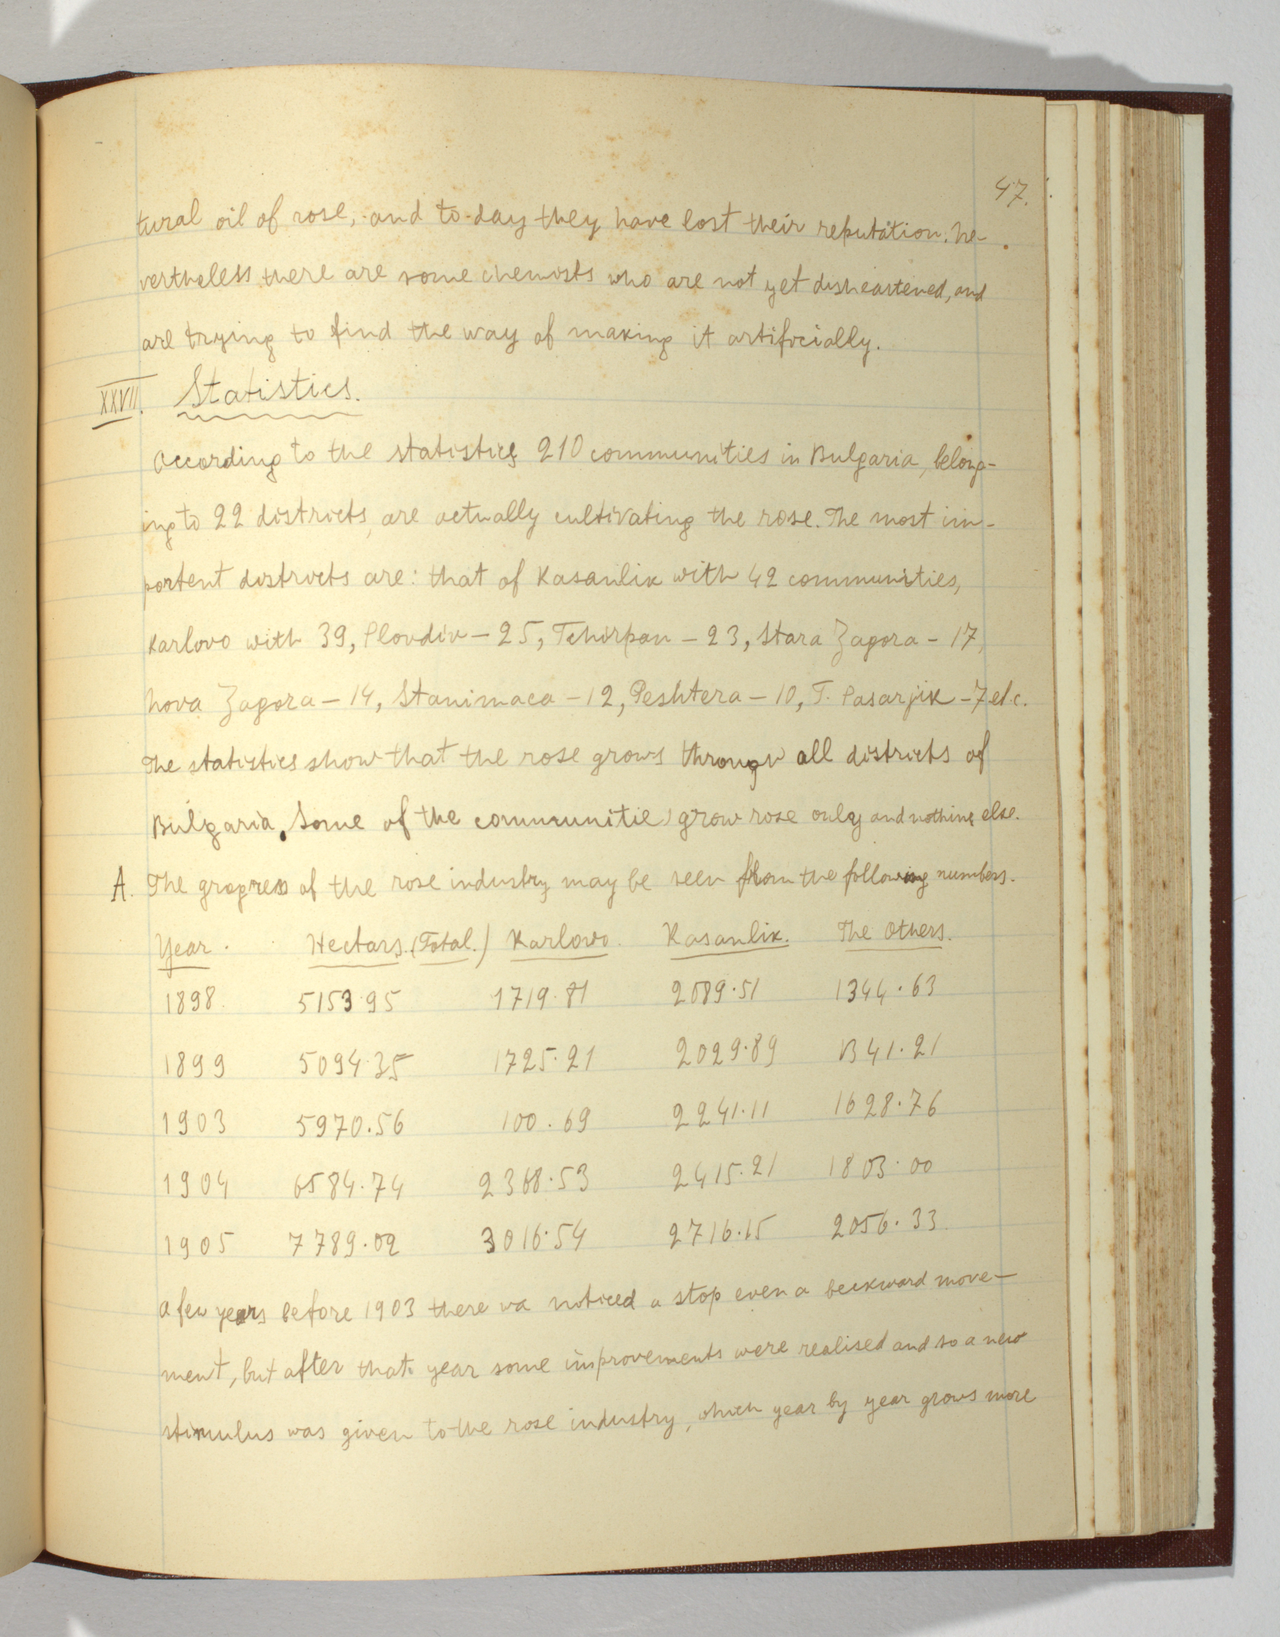 47.
tural oil of rose, and to-day they have lost their reputation. Ne-
vertheless there are some chemists who are not yet disheartened, and
are trying to find the way of making it artificially.
XXVII. Statistics.
According to the statistics 210 communities in Bulgaria, belong-
ing to 22 districts, are actually cultivating the rose. The most im-
portent districts are: that of Kasanlik with 42 communities,
Karlovo with 39, Plovdiv – 25, Tchirpan – 23, Stara Zagora – 17,
Nova Zagora – 14, Stanimaca – 12, Peshtera – 10, T. Pasarjik – 7 etc.
The statistics show that the rose grows through all districts of
Bulgaria. Some of the communities grow rose only and nothing else.
A. The progres of the rose industry may be seen from the following numbers.
Year. Hectars. (Total.) Karlovo. Kasanlik. The Others.
1898. 5153.95 1719.81 2089.51 1344.63
1899 5094.35 1725.21 2029.89 1341.21
1903 5970.56 100.69 2241.11 1628.76
1904 6584.74 2368.53 2415.21 1803.00
1905 7789.02 3016.54 2716.15 2056.33
A few years before 1903 there va noticed a stop even a beckward move-
ment, but after that year some improvements were realised and so a new
stimulus was given to the rose industry, which year by year grows more